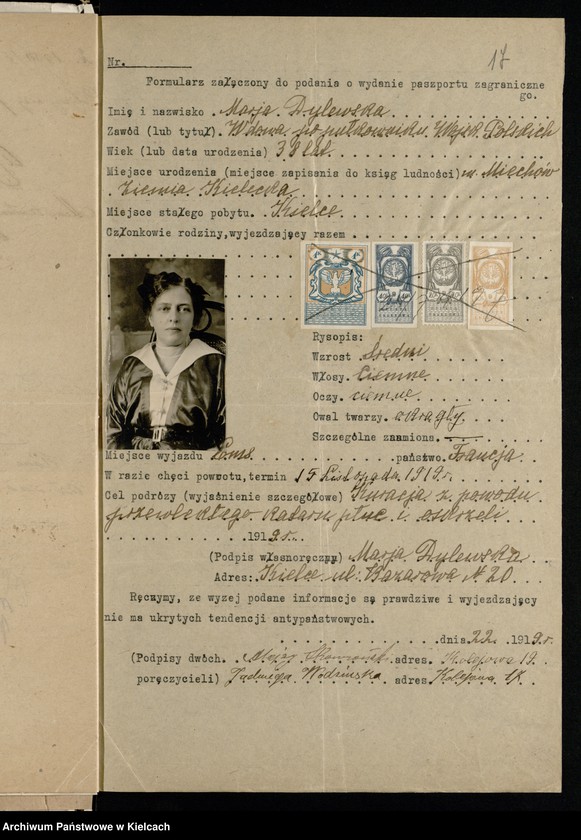 17
Nr.
Formularz załączony do podania o wydanie paszportu zagraniczne
go.
Imię i nazwisko Marja Dylewska
Zawód (lub tytuł) Wdowa po pułkowniku Wojsk Polskich
Wiek (lub data urodzenia) 38 lat
Miejsce urodzenia (miejsce zapisania do ksiąg ludności) m. Miechów
Ziemia Kielecka
Miejsce stałego pobytu. Kielce
Członkowie rodziny,wyjeżdzający razem
Rysopis:
Wzrost. Średni
Włosy. Ciemne
Oczy. ciemne
Owal twarzy. okrągły
Szczególne znamiona. —
Miejsce wyjazdu państwo. Francja
W razie chęci powrotu, termin 15 Listopada 1919 r.
Cel podróży (wyjaśnienie szczegółowe) Kuracja z powodu
przewlekłego kataru płuc i oskrzeli
1919 r.
(Podpis własnoręczny) Marja Dylewska
Adres: Kielce ul. Bazarowa N 20
Ręczymy, ze wyzej podane informacje są prawdziwe i wyjezdzający
nie ma ukrytych tendencji antypaństwowych.
dnia 22 1919 r.
(Podpisy dwóch. adres. Kolejowa 19.
poręczycieli) Jadwiga Wodzińska adres. Kolejowa
Archiwum Państwowe w Kielcach